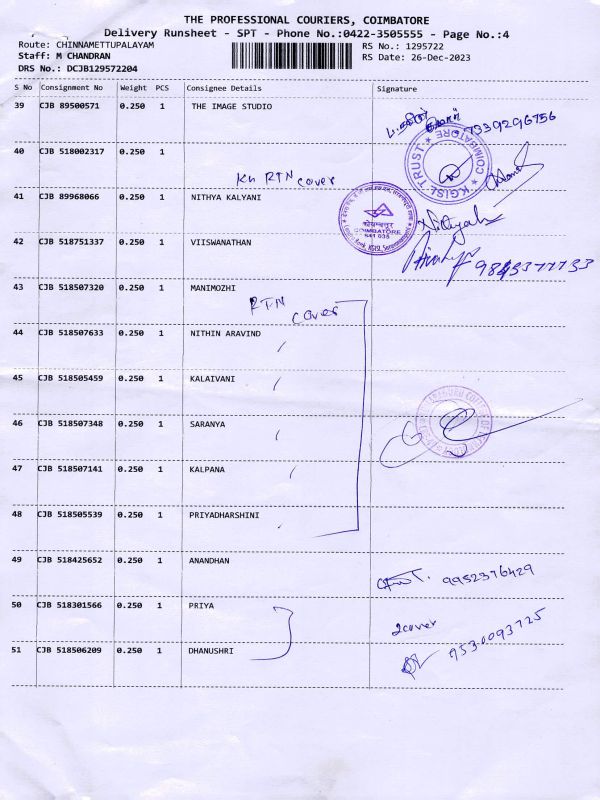 THE PROFESSIONAL COURIERS, COIMBATORE
Delivery Runsheet - SPT - Phone No.:0422-3505555 - Page No.:4
Route: CHINNAMETTUPALAYAM RS No.: 1295722
Staff: M CHANDRAN RS Date: 26-Dec-2023
DRS No.: DCJB129572204
S No Consignment No Weight PCS Consignee Details Signature
39 CJB 89500571 0.250 1 THE IMAGE STUDIO
7339296756
40 CJB 518002317 0.250 1
KGISL TRUST * COIMBATORE *
RTN cover
41 CJB 89968066 0.250 1 NITHYA KALYANI
Nithyak
COIMBATORE
641 035
42 CJB 518751337 0.250 1 VIISWANATHAN
9843377733
43 CJB 518507320 0.250 1 MANIMOZHI
RTN cover
44 CJB 518507633 0.250 1 NITHIN ARAVIND
45 CJB 518505459 0.250 1 KALAIVANI
46 CJB 518507348 0.250 1 SARANYA
47 CJB 518507141 0.250 1 KALPANA
48 CJB 518505539 0.250 1 PRIYADHARSHINI
49 CJB 518425652 0.250 1 ANANDHAN
9952376429
50 CJB 518301566 0.250 1 PRIYA
2cover
51 CJB 518506209 0.250 1 DHANUSHRI
9530093725